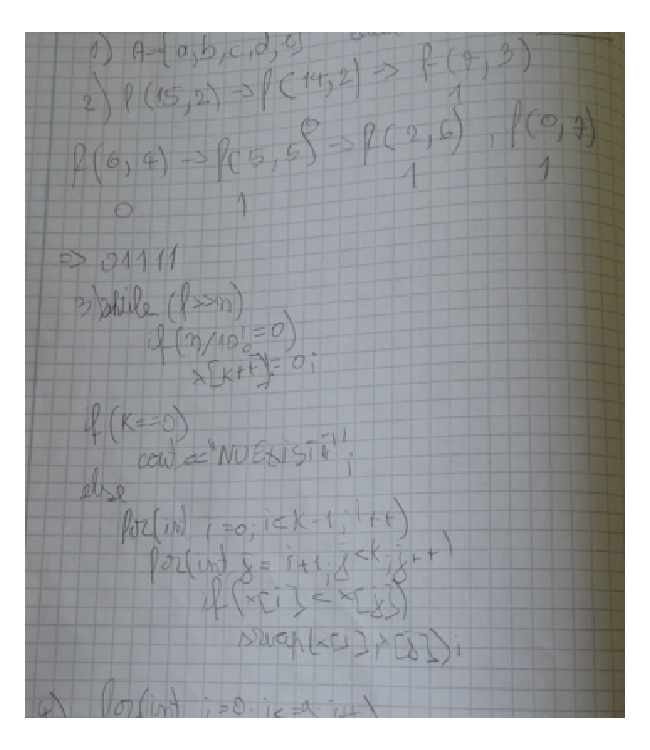 1) A={a,b,c,d,e}
2) f(15,2) => f(14,2) => f(7,3)
1
f(6,4) => f(5,5) => f(2,6), f(0,7)
0 1 1 1
=> 01111
3) while (f>>n)
if(n/10!=0)
x[k++]=0;
if(k==0)
cout <<"NU EXISTA";
else
for(int i=0;i<k-1;i++)
for(int j=i+1;j<k;j++)
if(x[i]<x[j])
swap(x[i],x[j]);
4) for(int i=0;i<=9;i++)